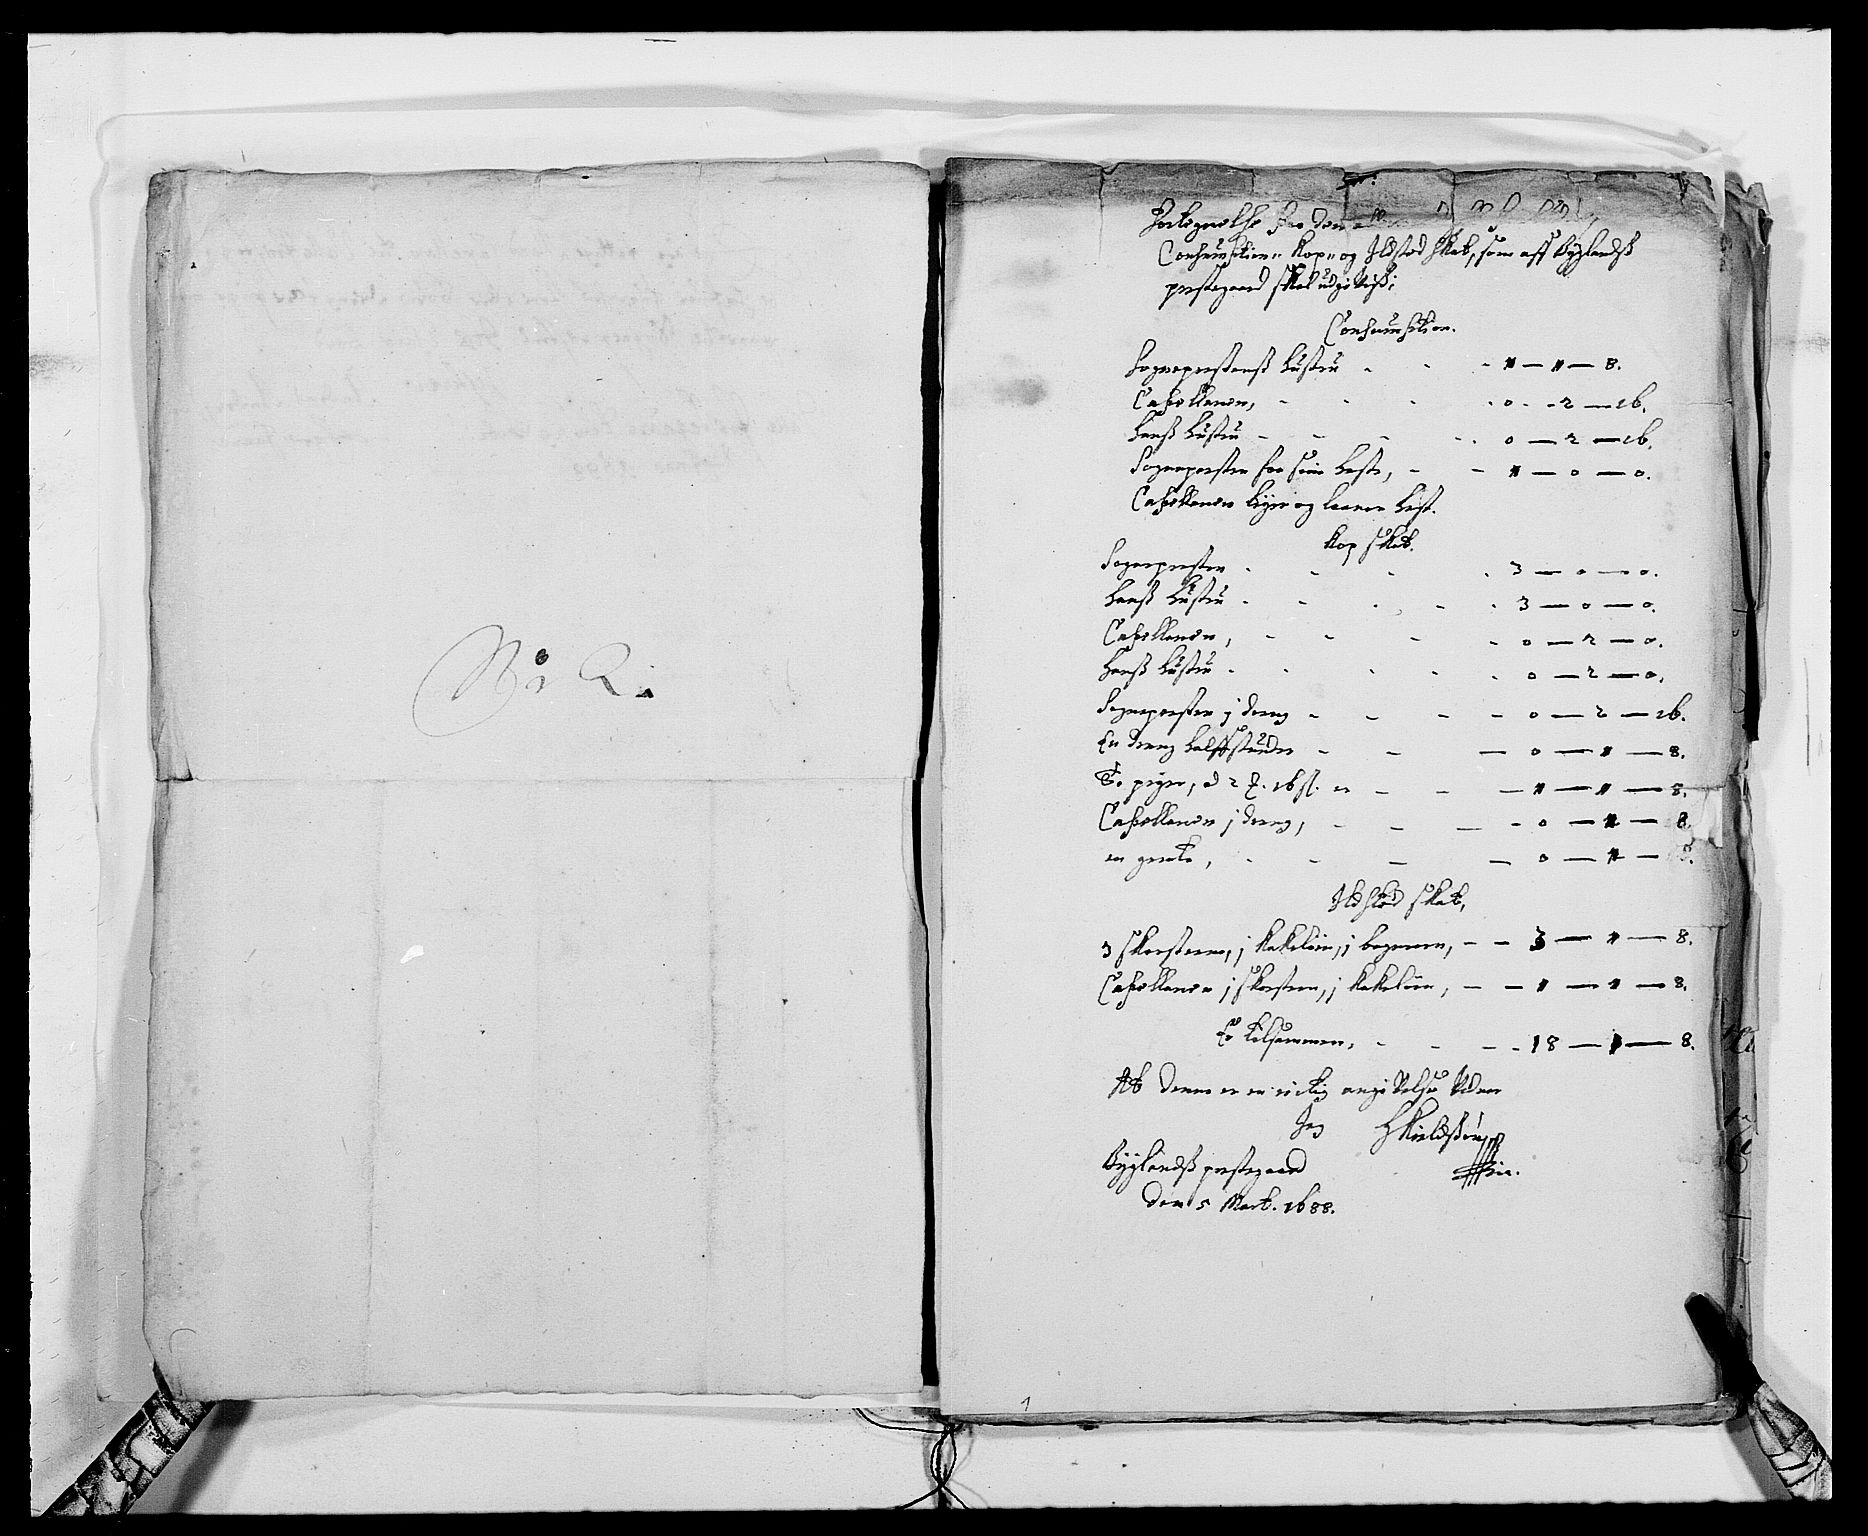 No 2.
Fortegnelse paa den
Consumption- Kop- og Ildsted skat, som aff Byglandß
prestegaard skal udgiveß:
Consumption.
Sogneprestenß Hustru - - - 1 - 1 - 8.
Capellanen, - - - - 0 - 2 - 16.
Hanß Hustru - - - - 0 - 2 - 16.
Sognepresten for sin heste, - - 1 - 0 - 0.
Capellanen leyer og laaner hest.
Kop skat.
Sognepresten - - - - 3 - 0 - 0.
Hanß Hustru - - - - 3 - 0 - 0.
Capellanen, - - - - 0 - 2 - 0.
Hanß Hustru - - - - 0 - 2 - 0.
Sognepresten j dreng - - - - 0 - 2 - 16.
En dreng - - - 0 - 1 - 8.
To piger, á 2 16 - - - 1 - 1 - 8.
Capellanen j dreng, - - - - 0 - 1 - 8.
en gente, - - - - 0 - 1 - 8.
Ildsted skat,
3 skorsteene, j kakelovn, j bageroen, - - 3 - 1 - 8.
Capellanen j skorsteen, j kakelovn, - - 1 - 1 - 8.
Er tilsammen, - - - - 18 - 1 - 8.
At denne er en rictig angivelse vidner
Jeg
Byglandß prestegaard
den 5 Mart. 1688.
1